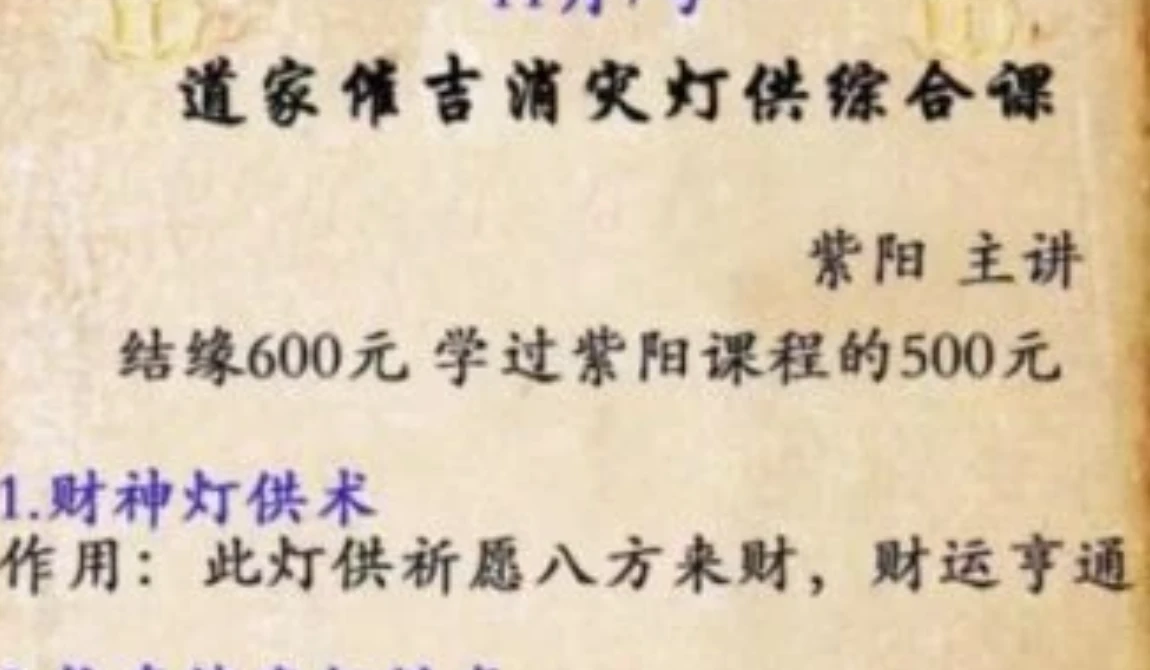 道家催吉消灾灯供综合课
紫阳 主讲
结缘600元 学过紫阳课程的500元
1.财神灯供术
作用： 此灯供祈愿八方来财，财运亨通